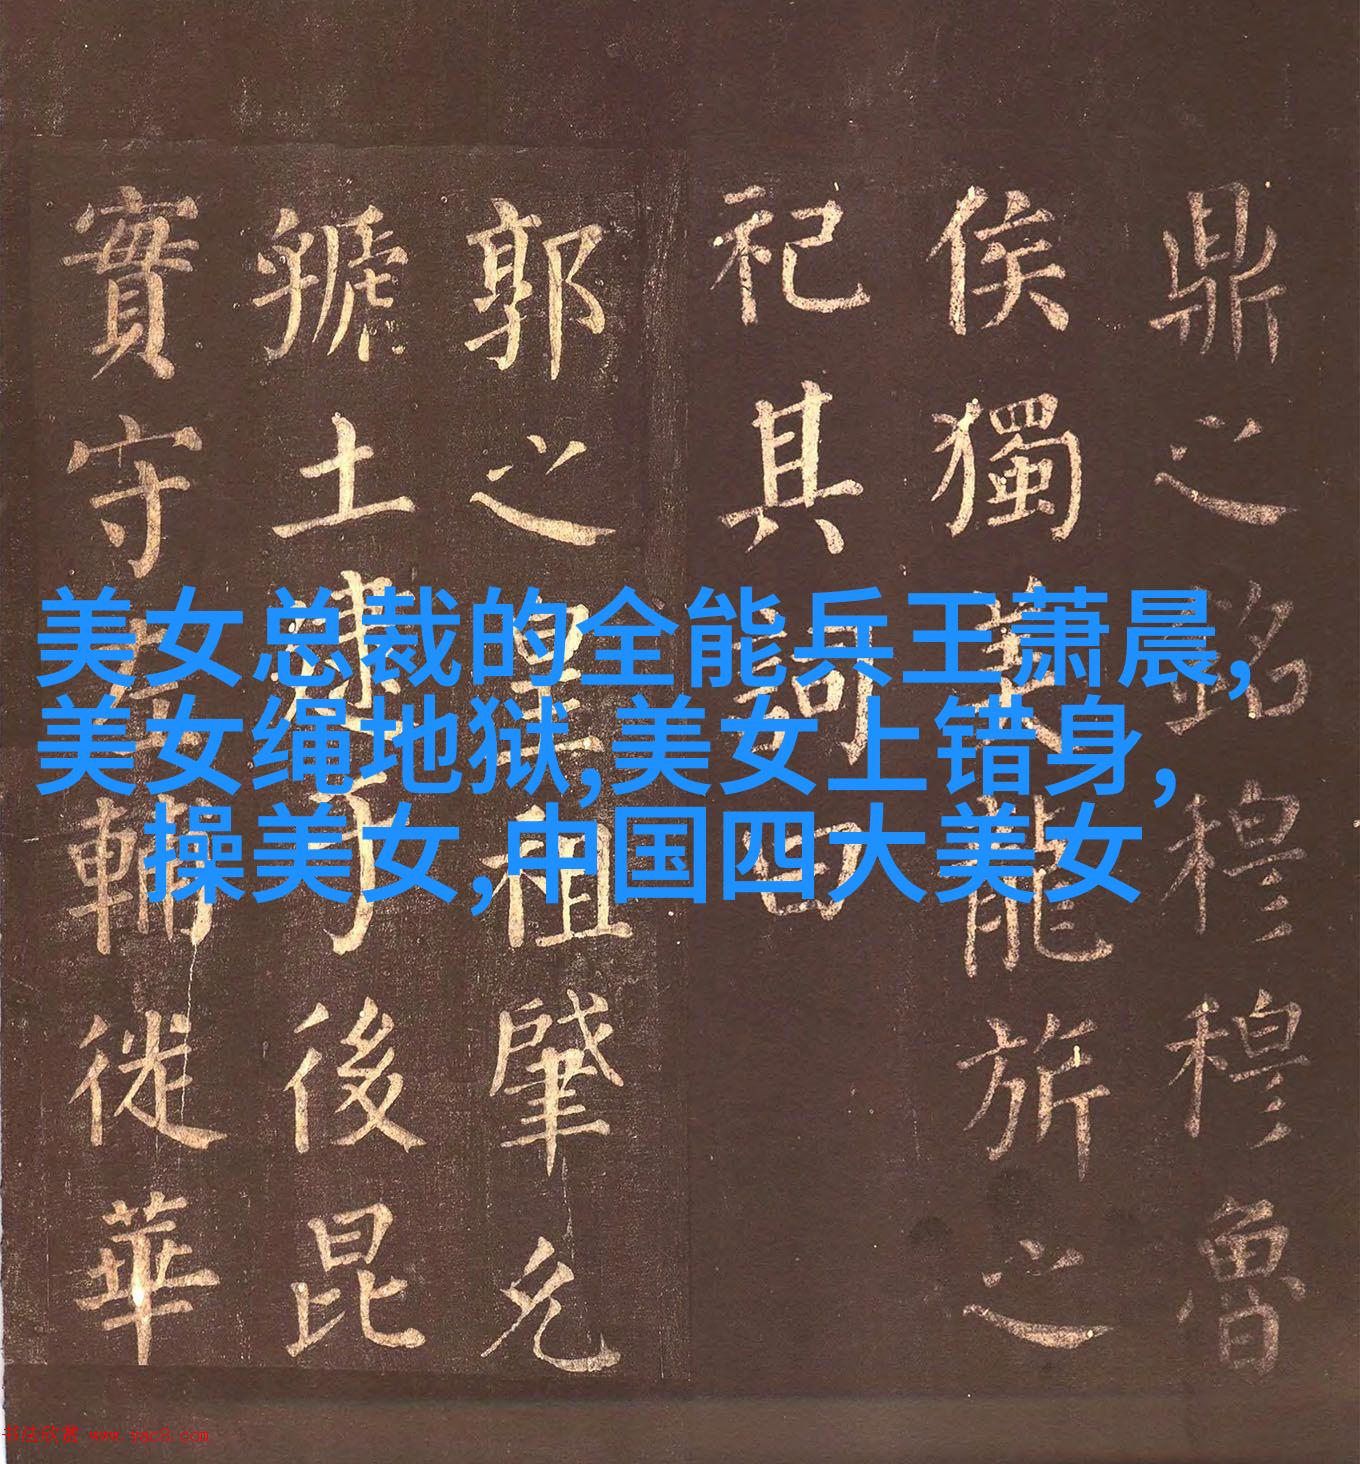 鼎之銘穆穆魯
侯獨龍旂之
祀其詞曰
郭之皇祖肇允
虢土逮于後昆
實守輔徙華
美女总裁的全能兵王萧晨,
美女绳地狱,美女上错身,
操美女,中国四大美女
书法欣赏 www.yac8.com